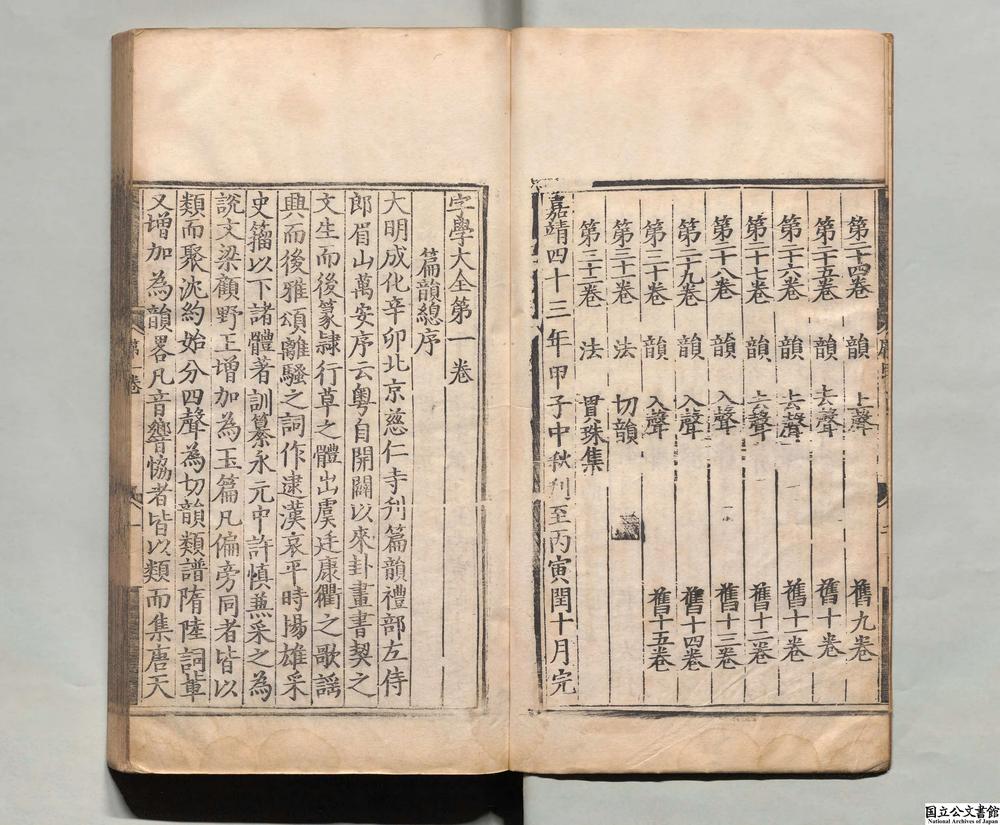 第二十四卷 韻 上聲 舊九卷
第二十五卷 韻 去聲 舊十卷
第二十六卷 韻 去聲 舊十一卷
第二十七卷 韻 去聲 舊十二卷
第二十八卷 韻 入聲 舊十三卷
第二十九卷 韻 入聲 舊十四卷
第三十卷 韻 入聲 舊十五卷
第三十一卷 法 切韻
第三十二卷 法 貫珠集
嘉靖四十三年甲子中秋刋至丙寅閏十月完
字學大全第一卷
篇韻總序
大明成化辛卯北京慈仁寺刋篇韻禮部左侍
郎眉山萬安序云粤自開闢以來卦畫書契之
文生而後篆隷行草之體出虞廷康衢之歌謡
興而後雅頌離騷之詞作逮漢哀平時揚雄采
史籀以下諸體著訓纂永元中許慎兼采之為
說文梁顧野王增加為玉篇凡偏旁同者皆以
類而聚沈約始分四聲為切韻類譜隋陸詞軰
又增加為韻畧凡音響恊者皆以類而集唐天
第一卷
一
国立公文書館
National Archives of Japan